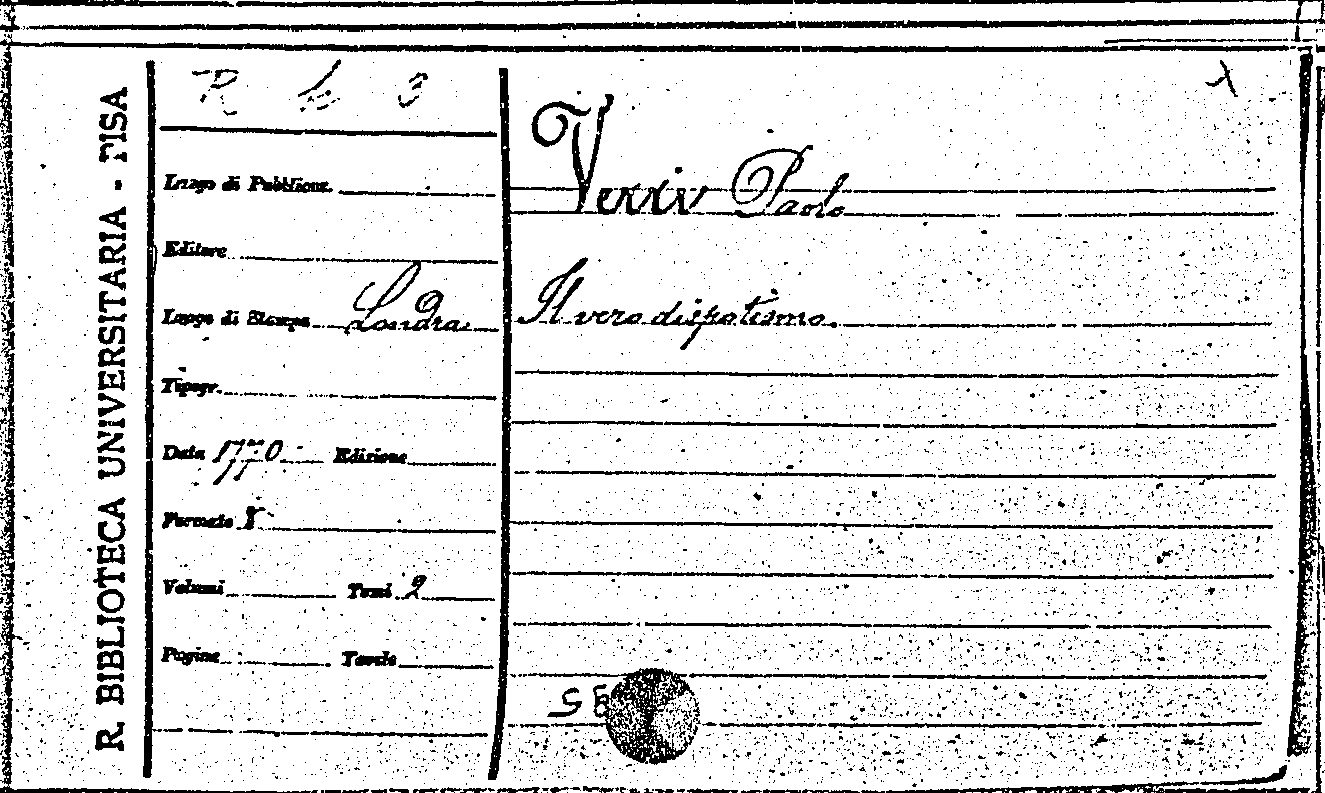 R. BIBLIOTECA UNIVERSITARIA - PISA
R h 3
Luogo di Pubblicaz.
Editore
Luogo di Stampa Londra
Tipogr.
Data 1770 Edizione
Formato 8°
Volumi Tomi 2
Pagine Tavole
Verri Paolo
Il vero dispotismo.